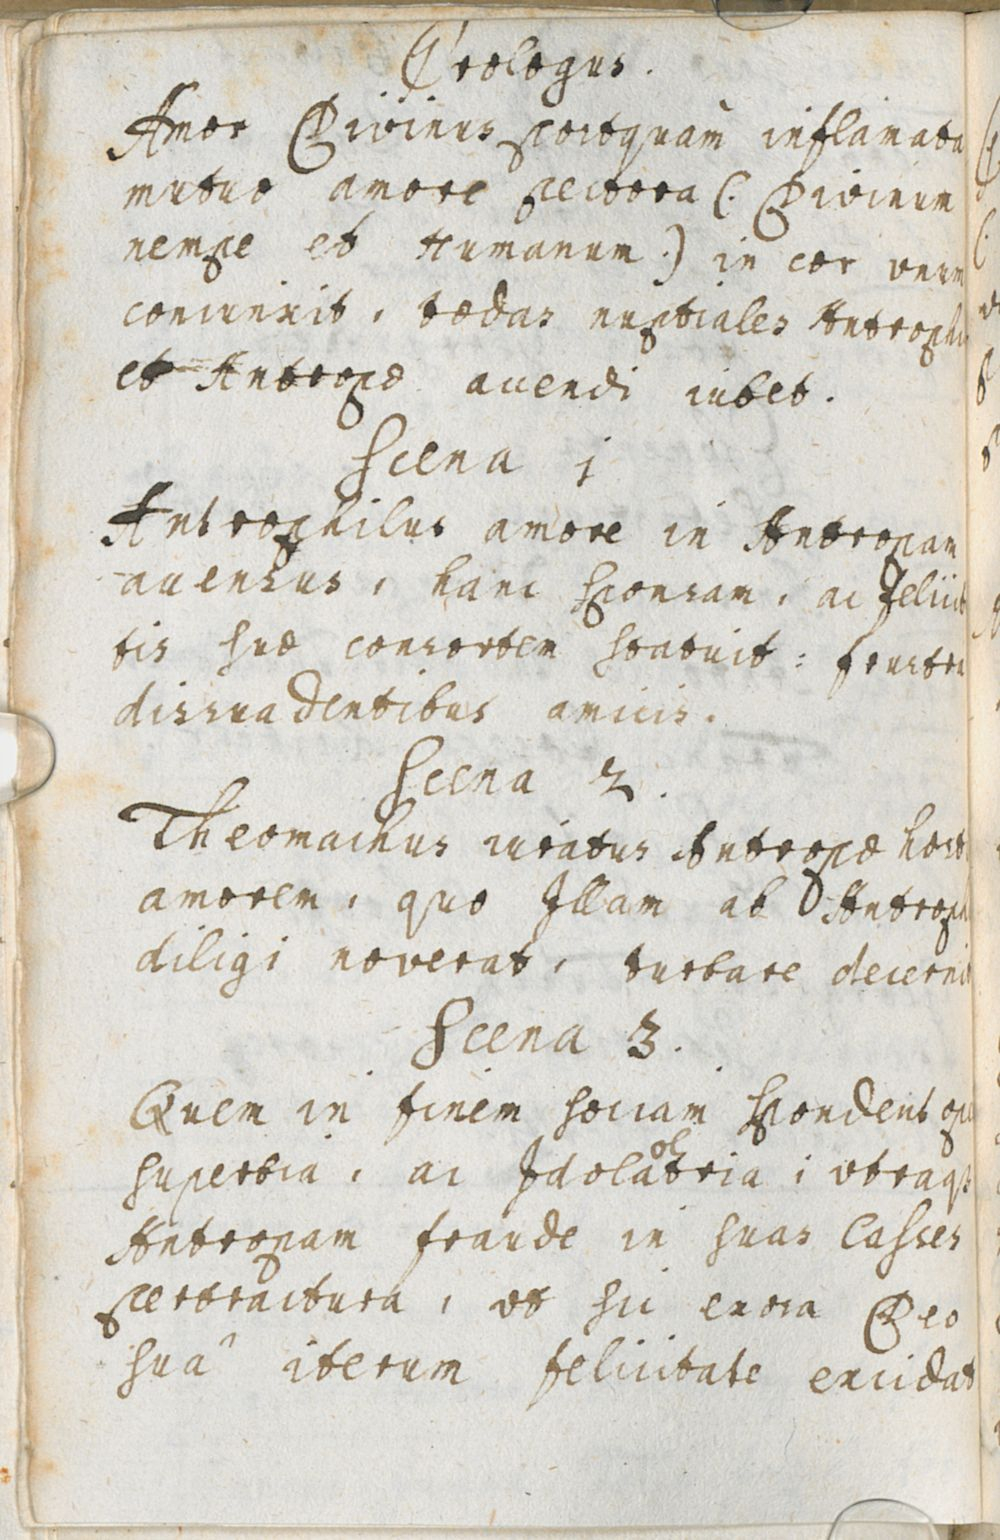 Prologus.
Amor Divinus postquam inflamata
mutuo amore pectora (: Divinum
nempe et Humanum :) in cor unum
coniunxit, tædas nuptiales Antrophi
et Antropæ accendi iubet.
Scena 1
Antrophilus amore in Antropam
accensus, hanc sponsam, ac Felici
tis suæ consortem statuit: frustra
dissuadentibus amicis.
Scena 2.
Theomachus iuratus Antropæ host
amorem, quo Illam ab Antroph
diligi noverat, turbare decerni
Scena 3.
Quem in finem sociam spondent ope
superbia, ac Idololatria; utraq
Antropam fraude in suas Casses
pertractura, ut sic exosa Deo
suâ iterum felicitate excidat